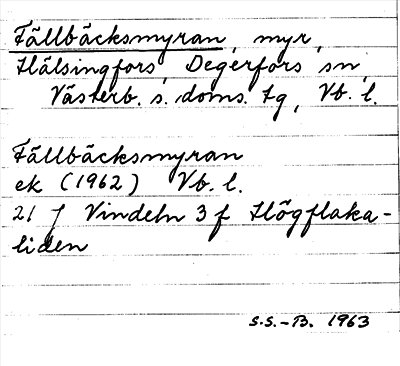 Fällbäcksmyran, myr,
Hälsingfors, Degerfors sn,
Västerb. s. doms. tg, Vb. l.
Fällbäcksmyran
ek (1962) Vb. l.
21 J Vindeln 3 f Högflaka-
liden
S.S.-B. 1963